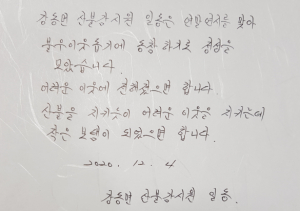 강동면 산불감시원 일동은 연말연시를 맞아
불우이웃돕기에 동참 하고자 성금을
모았습니다.
어려운 이웃에 전해졌으면 합니다.
산불을 지키듯이 어려운 이웃을 지키는데
작은 보탬이 되었으면 합니다.
2020. 12. 4
강동면 산불감시원 일동.